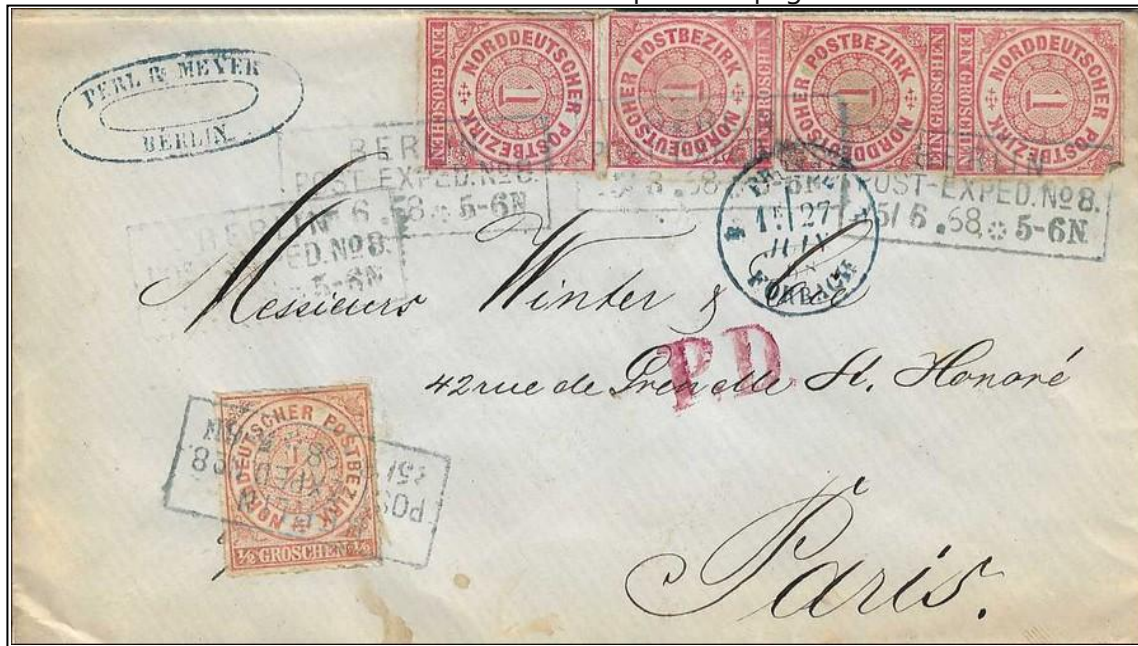 PERL & MEYER
BERLIN.
EIN GROSCHEN NORDDEUTSCHER POSTBEZIRK 1 EIN GROSCHEN
NORDDEUTSCHER POSTBEZIRK 1 EIN GROSCHEN
NORDDEUTSCHER POSTBEZIRK 1 EIN GROSCHEN
EIN GROSCHEN NORDDEUTSCHER POSTBEZIRK 1
BERLIN
POST-EXPED. No 8.
6.68 5-6N
BERLIN
POST-EXPED. No 8.
6.68 5-6N
BERLIN
ED. No 8.
5-6N
27
JUIN
FORBACH
Messieurs Winter &
P.D.
42 rue de Grenelle St. Honoré
NORDDEUTSCHER POSTBEZIRK
1/2 GROSCHEN 1/2
Paris.